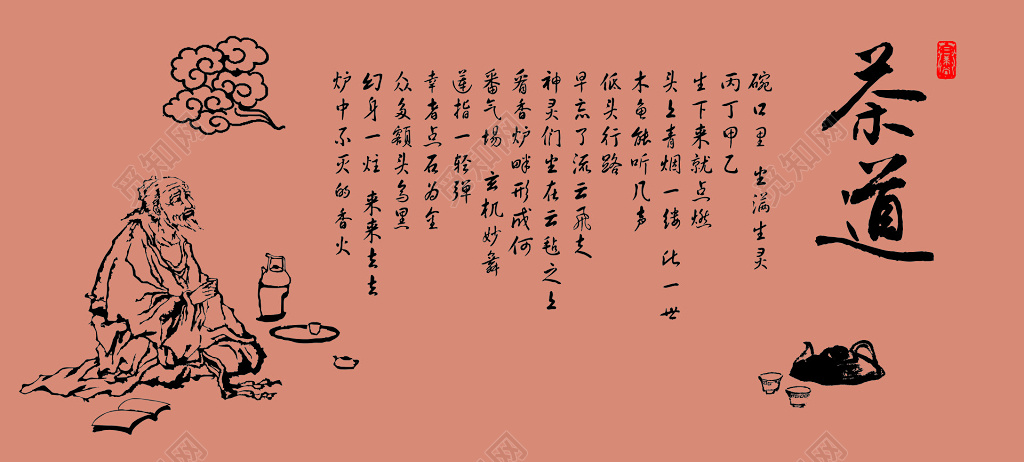 茶道
碗口里 坐满生灵
丙丁甲乙
生下来就点燃
头上青烟一缕 比一世
木鱼能听几声
低头行路
早忘了流云飞走
神灵们坐在云毡之上
看香炉畔形成何
番气场 玄机妙舞
莲指一轻弹
幸者点石为金
众多额头乌黑
幻身一炷 来来去去
炉中不灭的香火
觅知网